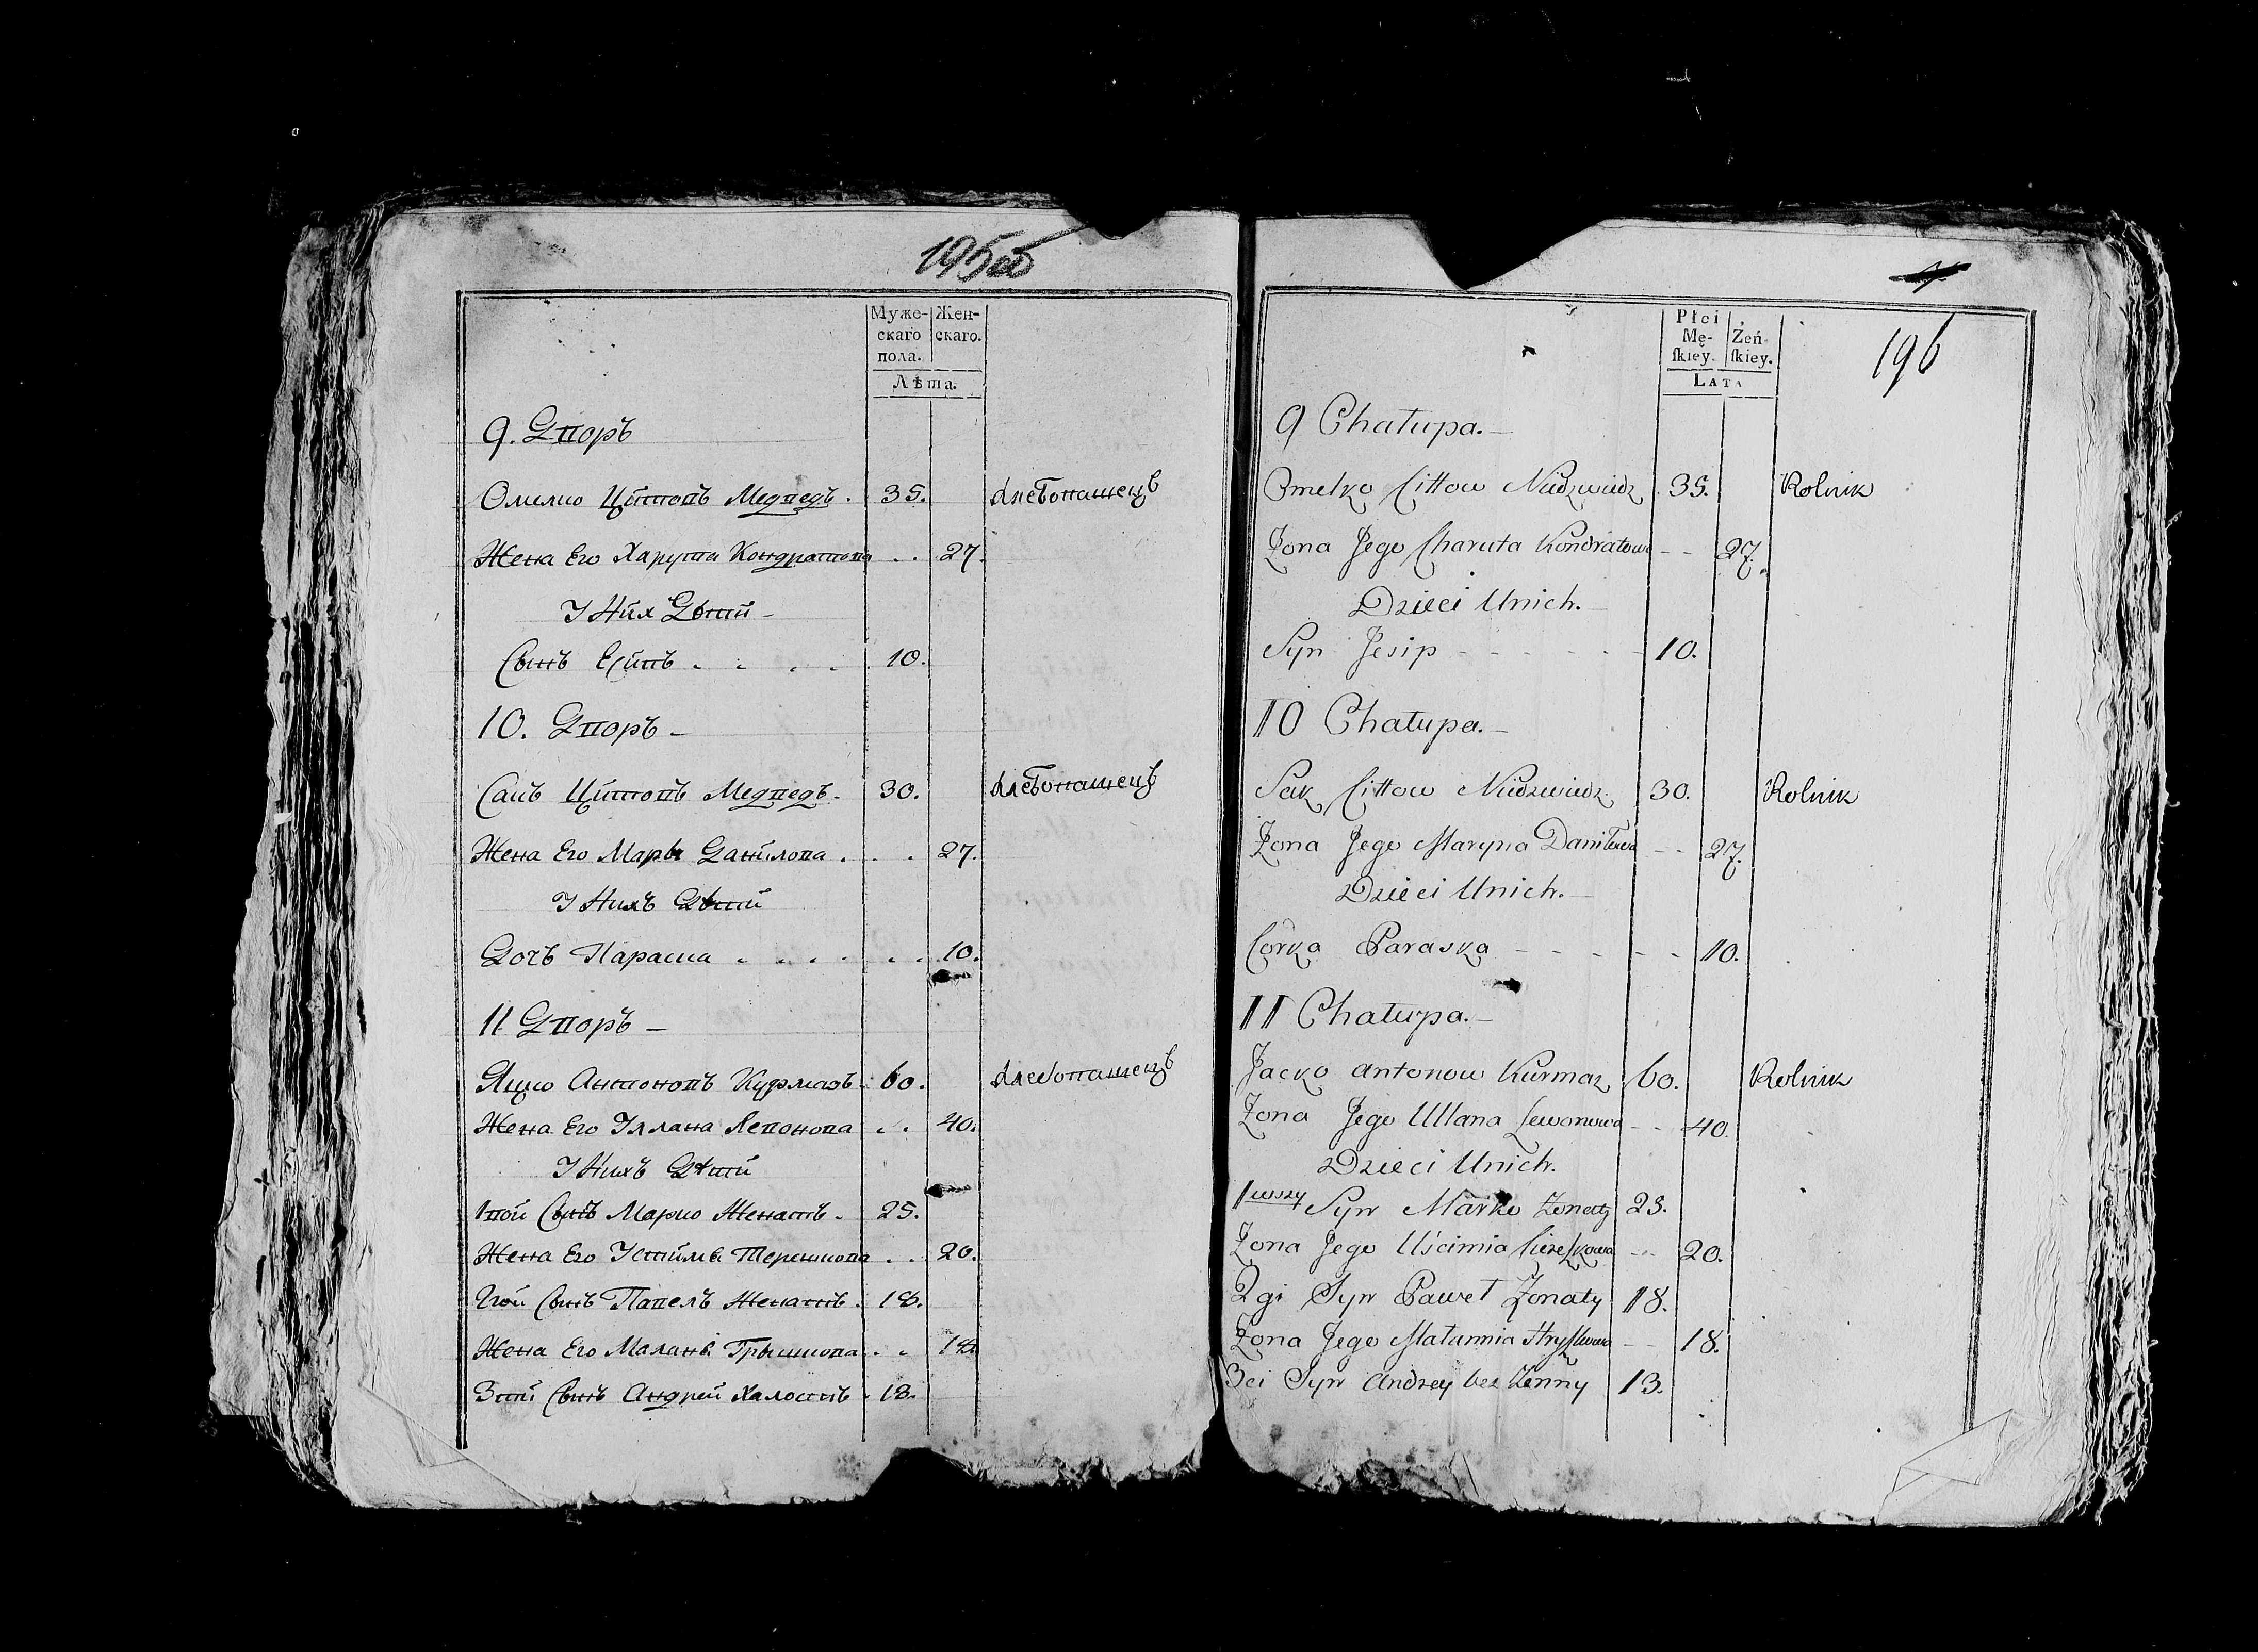 195об
Муже-
скаго
пола.
Жен-
скаго.
Лѣта.
9. Дворъ
Омелко Цѣтовъ Медведъ. 35. хлебопашецъ
Жена Его Харута Кондратова . . 27.
У Них Дѣти –
Сынъ Есипъ . . . . 10.
10. Дворъ –
Сакъ Цитовъ Медведъ. 30. хлебопашецъ
Жена Его Мары Данилова . . . 27.
У Нихъ Дѣти
Дочъ Параска . . . . . . 10.
11 Дворъ –
Яцко Антоновъ Курмазъ 60. хлебопашецъ
Жена Его Уллана Левонова . . 40.
У Нихъ Дѣти
1вой Сынъ Марко Женатъ. 25.
Жена Его Устимѣ Терешкова . . 20.
2гой Сынъ Павелъ Женатъ. 18.
Жена Его Маланѣ Грышкова . . 18.
3тій Сынъ Андрей Халостъ. 13.
196
Płci
Mę-
ſkiey.
Żeń-
ſkiey.
LATA
9 Chałupa.–
Omelko Cittow Niedzwiedz 35. Rolnik
Zona Jego Charuta Kondratowa – – 27.
Dzieci Unich.–
Syn Jesip – – – – – – 10.
10 Chałupa.–
Sak Cittow Niedzwiedz 30. Rolnik
Zona Jego Maryna Daniłowa – – 27.
Dzieci Unich.–
Córka Paraska – – – – – – 10.
11 Chałupa.–
Jacko Antonow Kurmaz 60. Rolnik
Zona Jego Ullana Lewonowa – – 40.
Dzieci Unich.
1wszy Syn Marko Zonaty 25.
Zona Jego Uścimia Ciereszkowa – – 20.
2gi Syn Paweł Zonaty 18.
Zona Jego Małannia Hryszkowa – – 18.
3ci Syn Andrey bez Zenny 13.